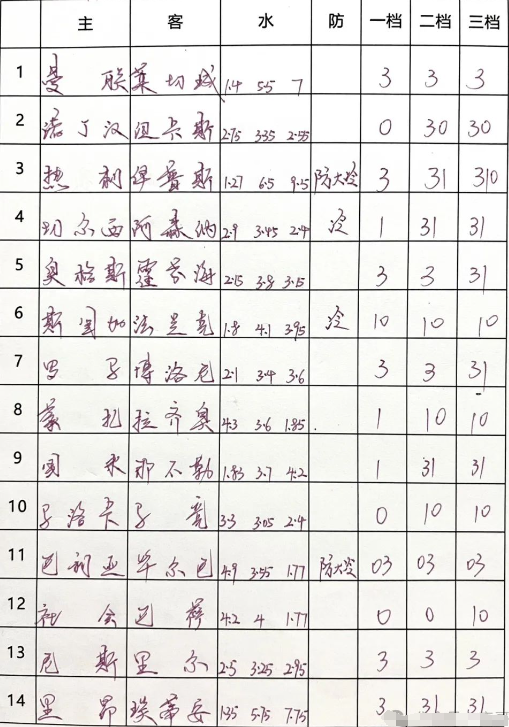 主 客 水 防 一档 二档 三档
1 曼 联 莱切城 1.4 5.5 7 3 3 3
2 诺丁汉 纽卡斯 2.75 3.35 2.55 0 30 30
3 热 刺 伊普斯 1.27 6.5 9.5 防大冷 3 31 310
4 切尔西 阿森纳 2.9 3.45 2.4 冷 1 31 31
5 奥格斯 霍芬海 2.15 3.8 3.15 3 3 31
6 斯图加 法兰克 1.8 4.1 3.95 冷 10 10 10
7 罗 马 博洛尼 2.1 3.4 3.6 3 3 31
8 蒙 扎 拉齐奥 4.3 3.6 1.85 1 10 10
9 国 米 那不勒 1.83 3.7 4.2 1 31 31
10 马洛卡 马 竞 3.3 3.05 2.4 0 10 10
11 巴利亚 毕尔巴 4.9 3.55 1.77 防大冷 03 03 03
12 社 会 巴 萨 4.2 4 1.77 0 0 10
13 尼 斯 里 尔 2.5 3.25 2.95 3 3 3
14 里 昂 埃蒂安 1.35 5.75 7.75 3 31 31